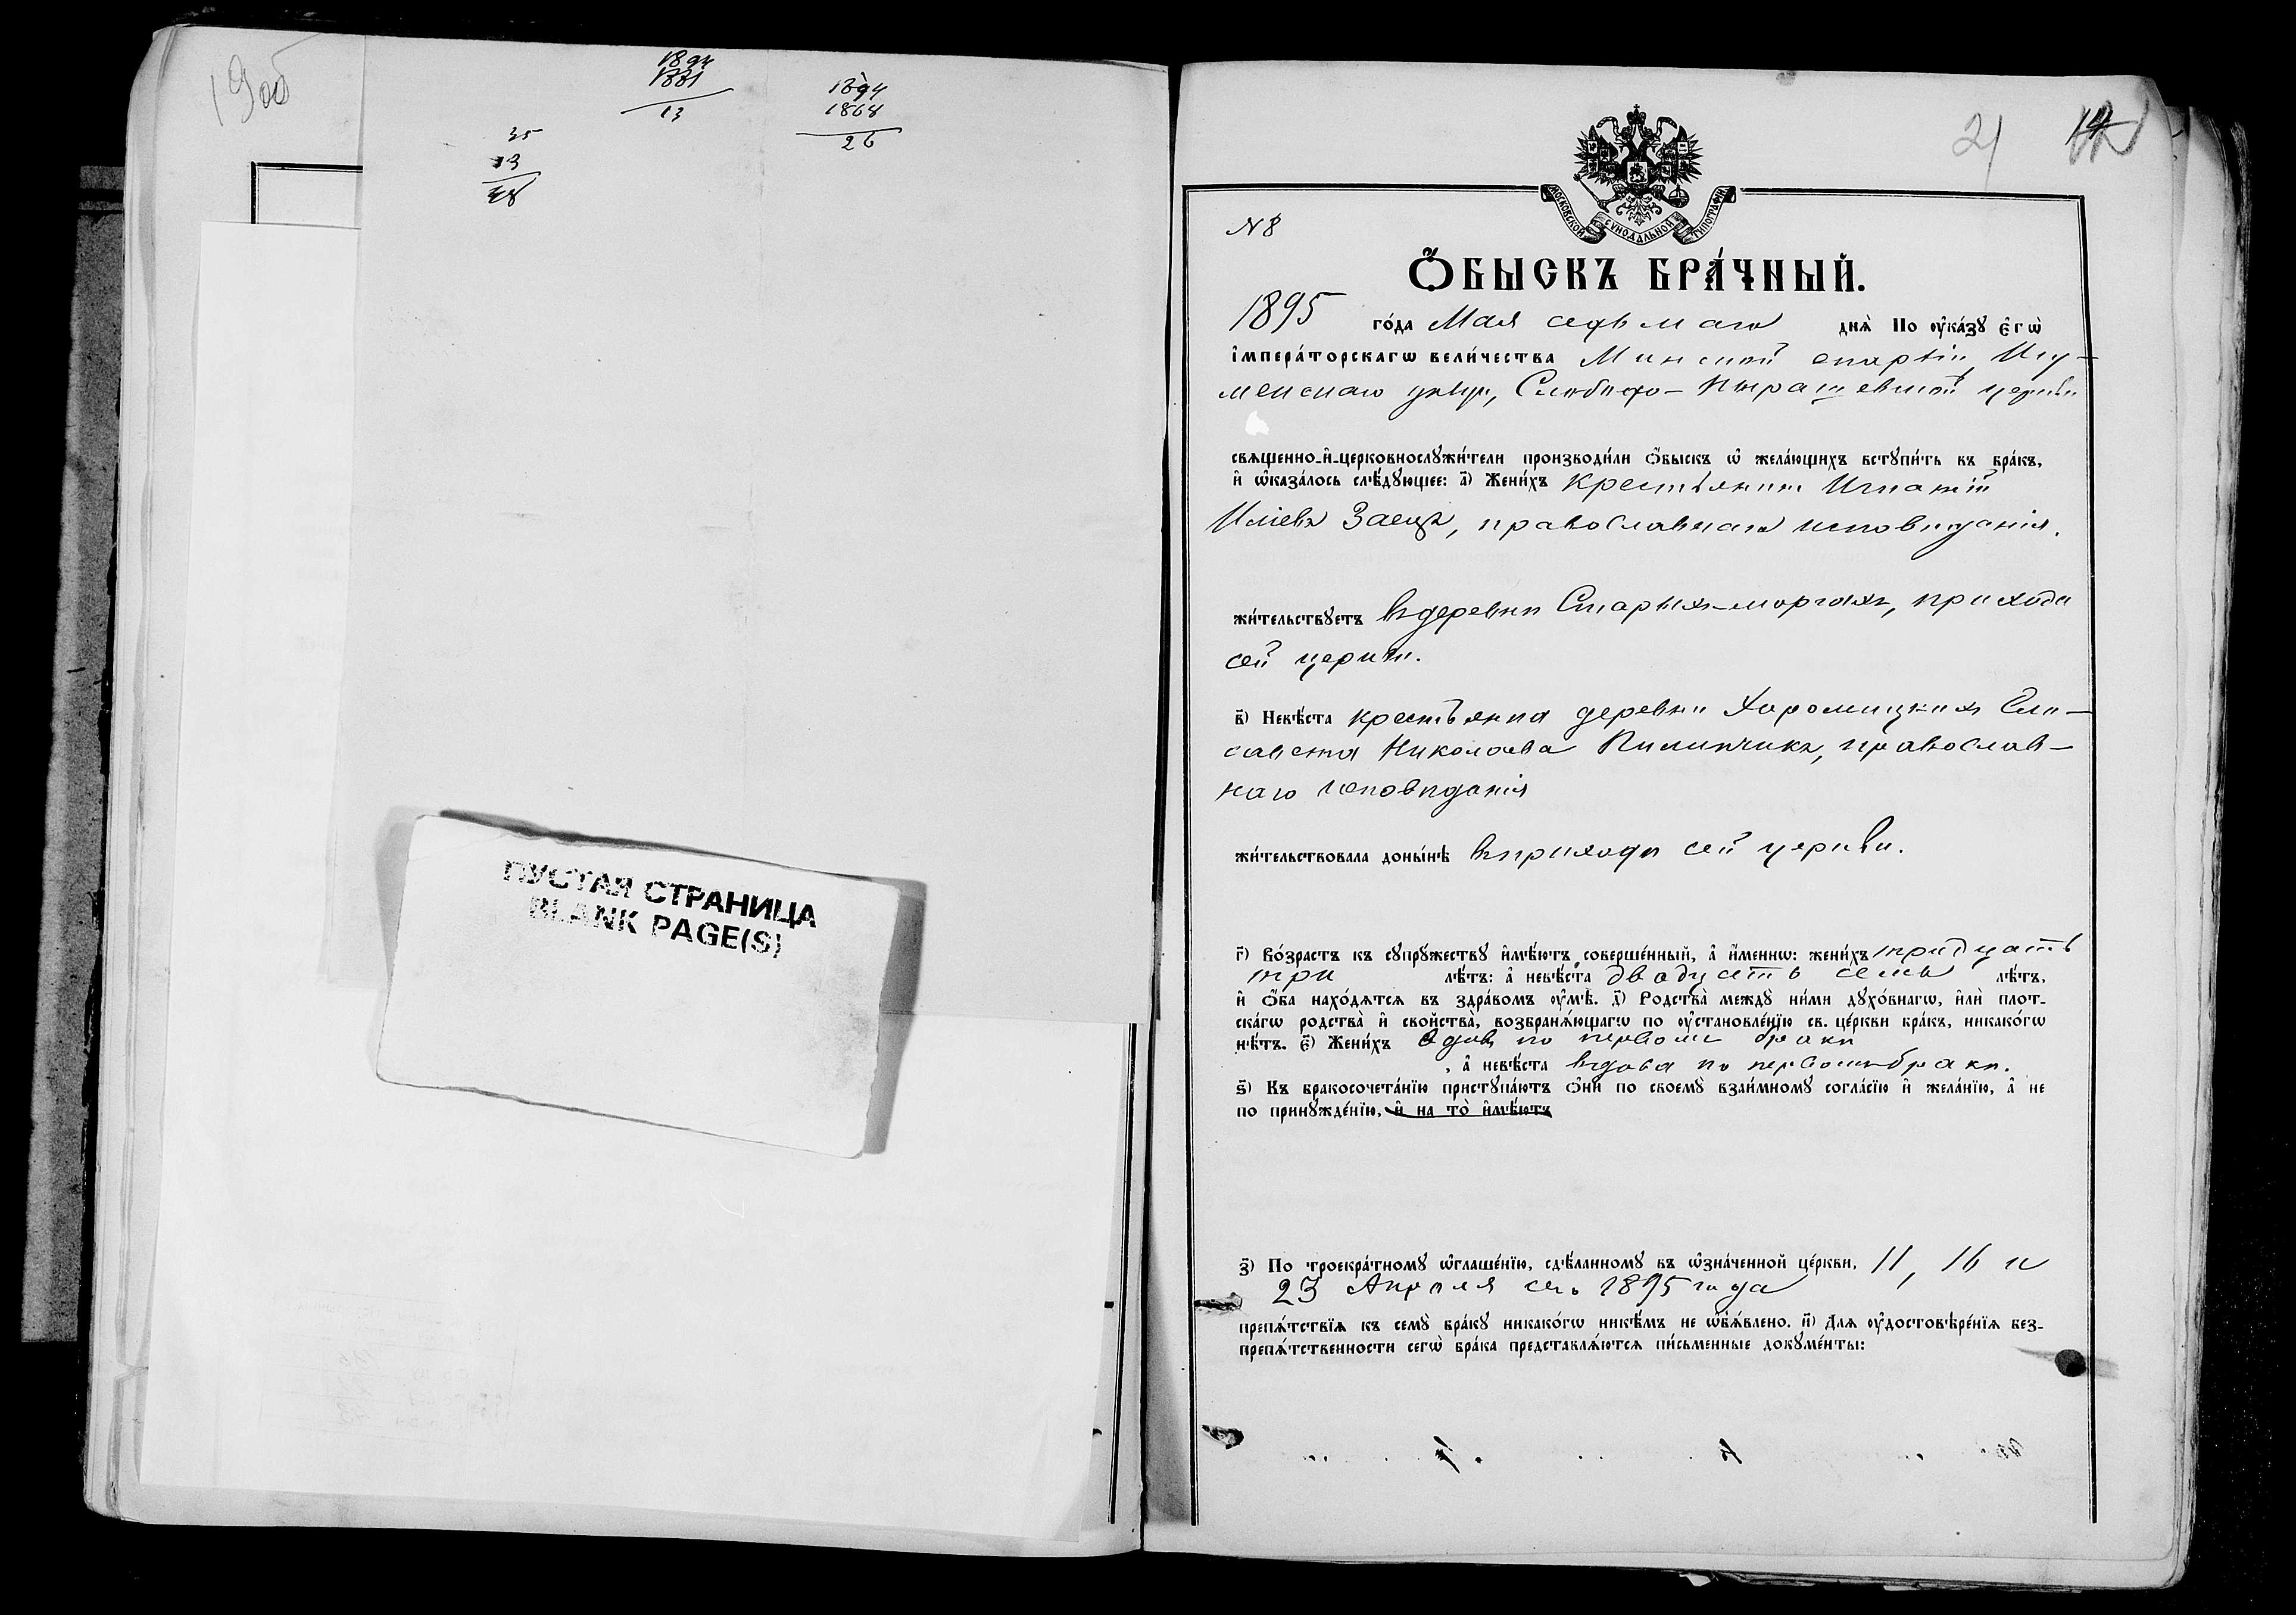 19об
1894
1881
13
1894
1868
26
35
13
48
ПУСТАЯ СТРАНИЦА
BLANK PAGE(S)
21
МОСКОВСКОЙ СѴНОДАЛЬНОЙ ТИПОГРАФІИ
N 8
Ѻ҆́БЫСКЪ БРА́ЧНЫЙ.
1895 го́да Мая седьмаго днѧ̀ По ᲂу҆ка́зꙋ є҆гѡ̀
і҆мпера́торскагѡ вели́чества Минской епархіи, Игу-
менскаго уѣзда, Слободо-Пырашевской церкви
свѧщенно-и҆-церковнослꙋжи́тели производи́ли ѻ҆́быскъ ѡ҆ жела́ющихъ встꙋпи́ть въ бра́къ,
и҆ ѡ҆каза́лось слѣ́дꙋющее: а҃) Жени́хъ крестьянинъ Игнатій
Иліевъ Заецъ, православнаго исповѣданія.
жи́тельствꙋетъ въ деревнѣ Старыхъ-моргахъ, прихода
сей церкви.
в҃) Невѣ́ста крестьянка деревни Хоромицкихъ Ели-
савета Николаева Пилипчикъ, православ-
наго исповѣданія
жи́тельствовала доны́нѣ въ приходѣ сей церкви.
г҃) Во́зрастъ къ сꙋпрꙋ́жествꙋ и҆мѣ́ютъ соверше́нный, а҆ и҆́меннѡ: жени́хъ тридцать
три лѣ́тъ: а҆ невѣ́ста двадцать семь лѣ́тъ,
и҆ ѻ҆́ба нахо́дѧтсѧ въ здра́вомъ ᲂу҆мѣ̀. д҃) Родства̀ междꙋ̀ ни́ми дꙋхо́внагѡ, и҆лѝ плот-
ска́гѡ родства̀ и҆ свойства̀, возбранѧ́ющагѡ по ᲂу҆становле́нїю св. це́ркви бра́къ, никако́гѡ
нѣ́тъ. є҃) Жени́хъ вдовъ по первомъ бракѣ
, а҆ невѣ́ста вдова по первомъ бракѣ.
ѕ҃) Къ бракосочета́нїю пристꙋпа́ютъ ѻ҆нѝ по своемꙋ̀ взаи́мномꙋ согла́сїю и҆ жела́нїю, а҆ не
по принꙋжде́нїю, и҆ на то̀ и҆мѣ́ютъ
з҃) По троекра́тномꙋ ѡ҆глаше́нїю, сдѣ́ланномꙋ въ ѡ҆зна́ченной це́ркви, 11, 16 и
23 Апрѣля сего 1895 года
препѧ́тствїѧ къ семꙋ̀ бра́кꙋ никако́гѡ никѣ́мъ не ѡ҆б̾ѧ́влено. и҃) Длѧ ᲂу҆достовѣре́нїѧ без-
препѧ́тственности сегѡ̀ бра́ка представлѧ́ютсѧ пи́сьменные докꙋме́нты: